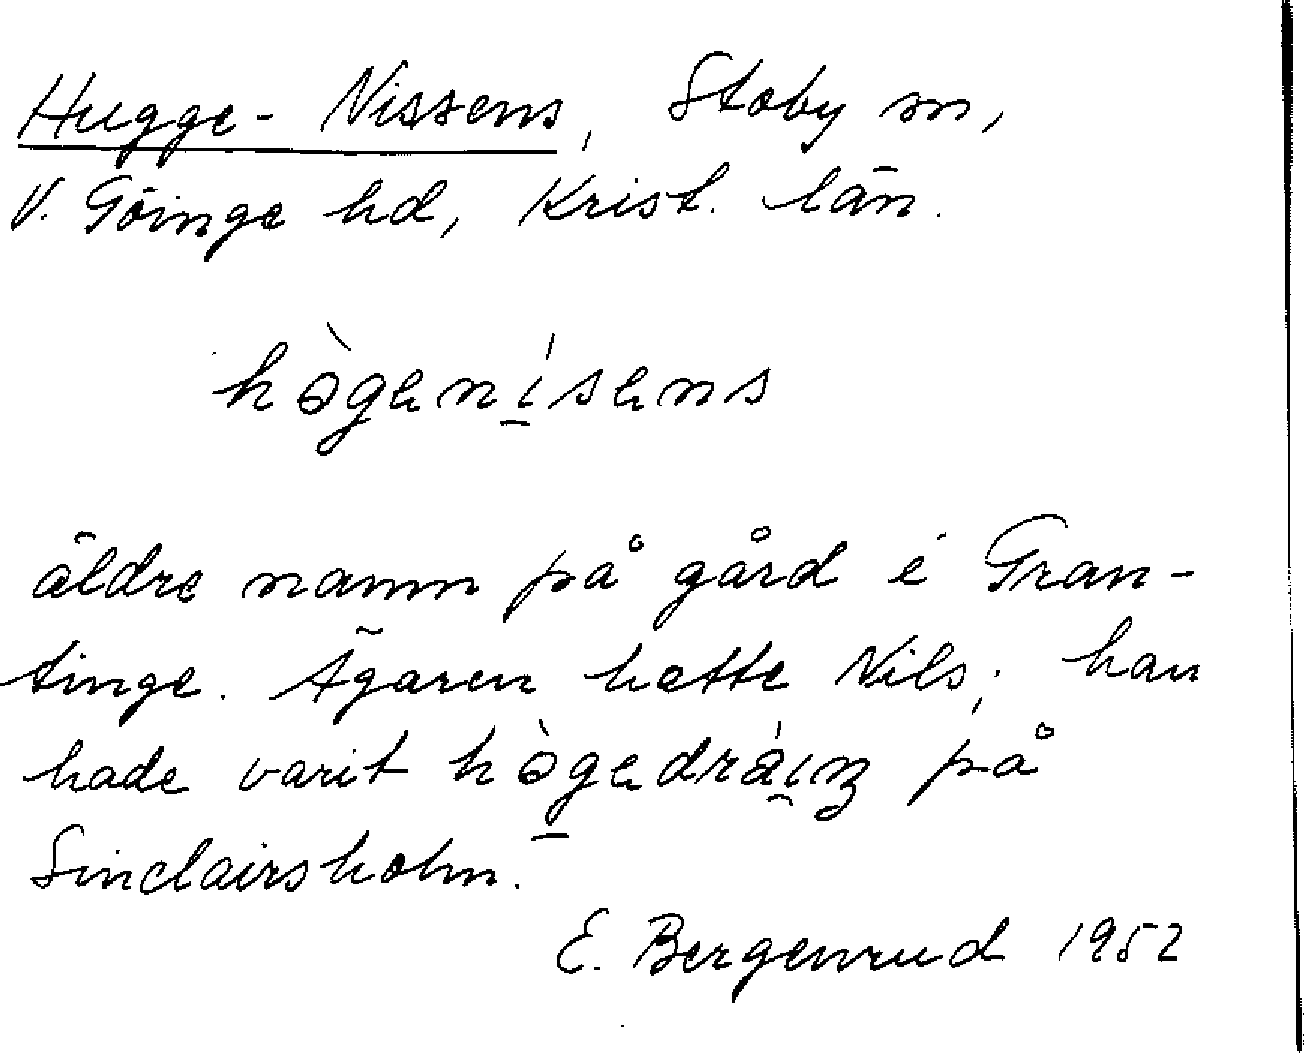 Hugge-Nissens, Stoby sn,
V. Göinge hd, Krist. län.
hògenísens
äldre namn på gård i Gran-
tinge. Ägaren hette Nils; han
hade varit på
Sinclairsholm.
E. Bergenrud 1952